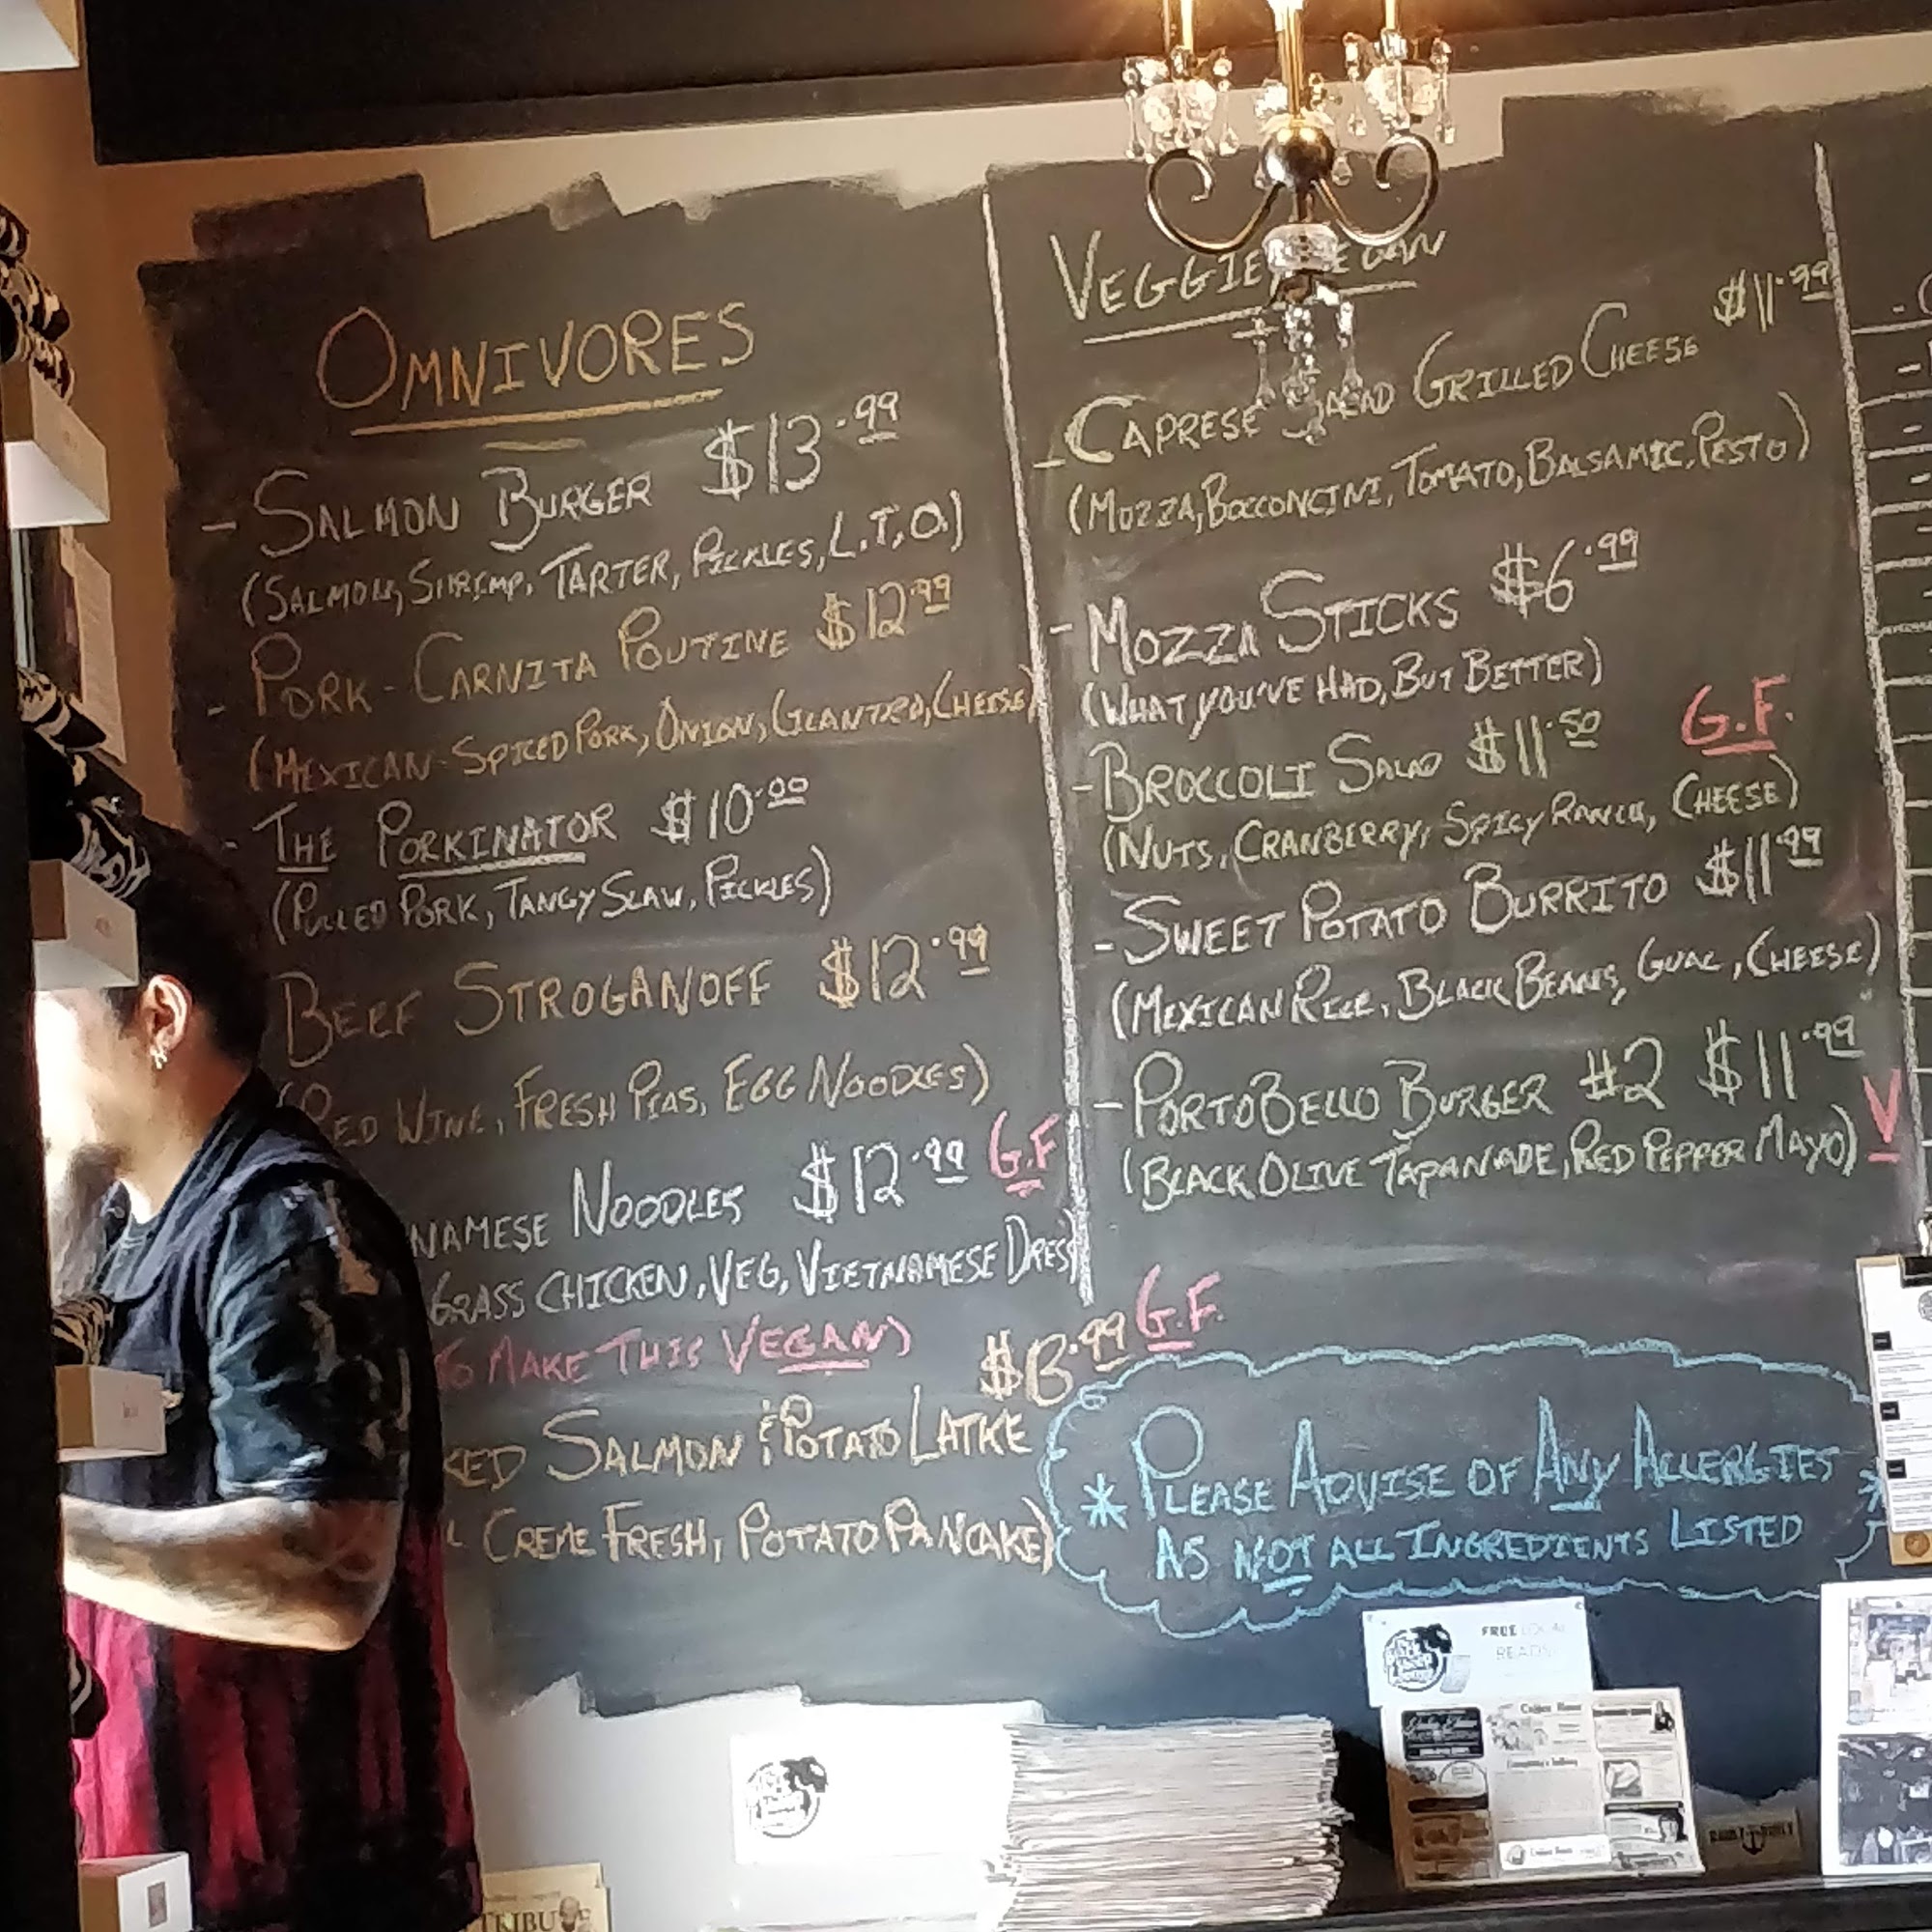 OMNIVORES
- SALMON BURGER $13.99
(SALMON, SHRIMP, TARTER, PICKLES, L.T.O.)
- PORK-CARNITA POUTINE $12.99
(MEXICAN-SPICED PORK, ONION, CILANTRO, CHEESE)
- THE PORKINATOR $10.00
(PULLED PORK, TANGY SLAW, PICKLES)
BEEF STROGANOFF $12.99
(RED WINE, FRESH PEAS, EGG NOODLES)
NAMESE NOODLES $12.99 G.F
GRASS CHICKEN, VEG, VIETNAMESE DRESS
TO MAKE THIS VEGAN)
G.F.
KED SALMON & POTATO LATKE
CREME FRESH, POTATO PANCAKE)
VEGGIE
- CAPRESE SALAD GRILLED CHEESE $11.99
(MOZZA, BOCCONCINI, TOMATO, BALSAMIC, PESTO)
- MOZZA STICKS $6.99
(WHAT YOU'VE HAD, BUT BETTER)
- BROCCOLI SALAD $11.50 G.F.
(NUTS, CRANBERRY, SPICY RANCH, CHEESE)
- SWEET POTATO BURRITO $11.99
(MEXICAN RICE, BLACK BEANS, GUAC, CHEESE)
- PORTOBELLO BURGER #2 $11.99
(BLACK OLIVE TAPANADE, RED PEPPER MAYO) V
* PLEASE ADVISE OF ANY ALLERGIES *
AS NOT ALL INGREDIENTS LISTED
FREE LOCAL
READS!
Coffee News
TRIBUTE